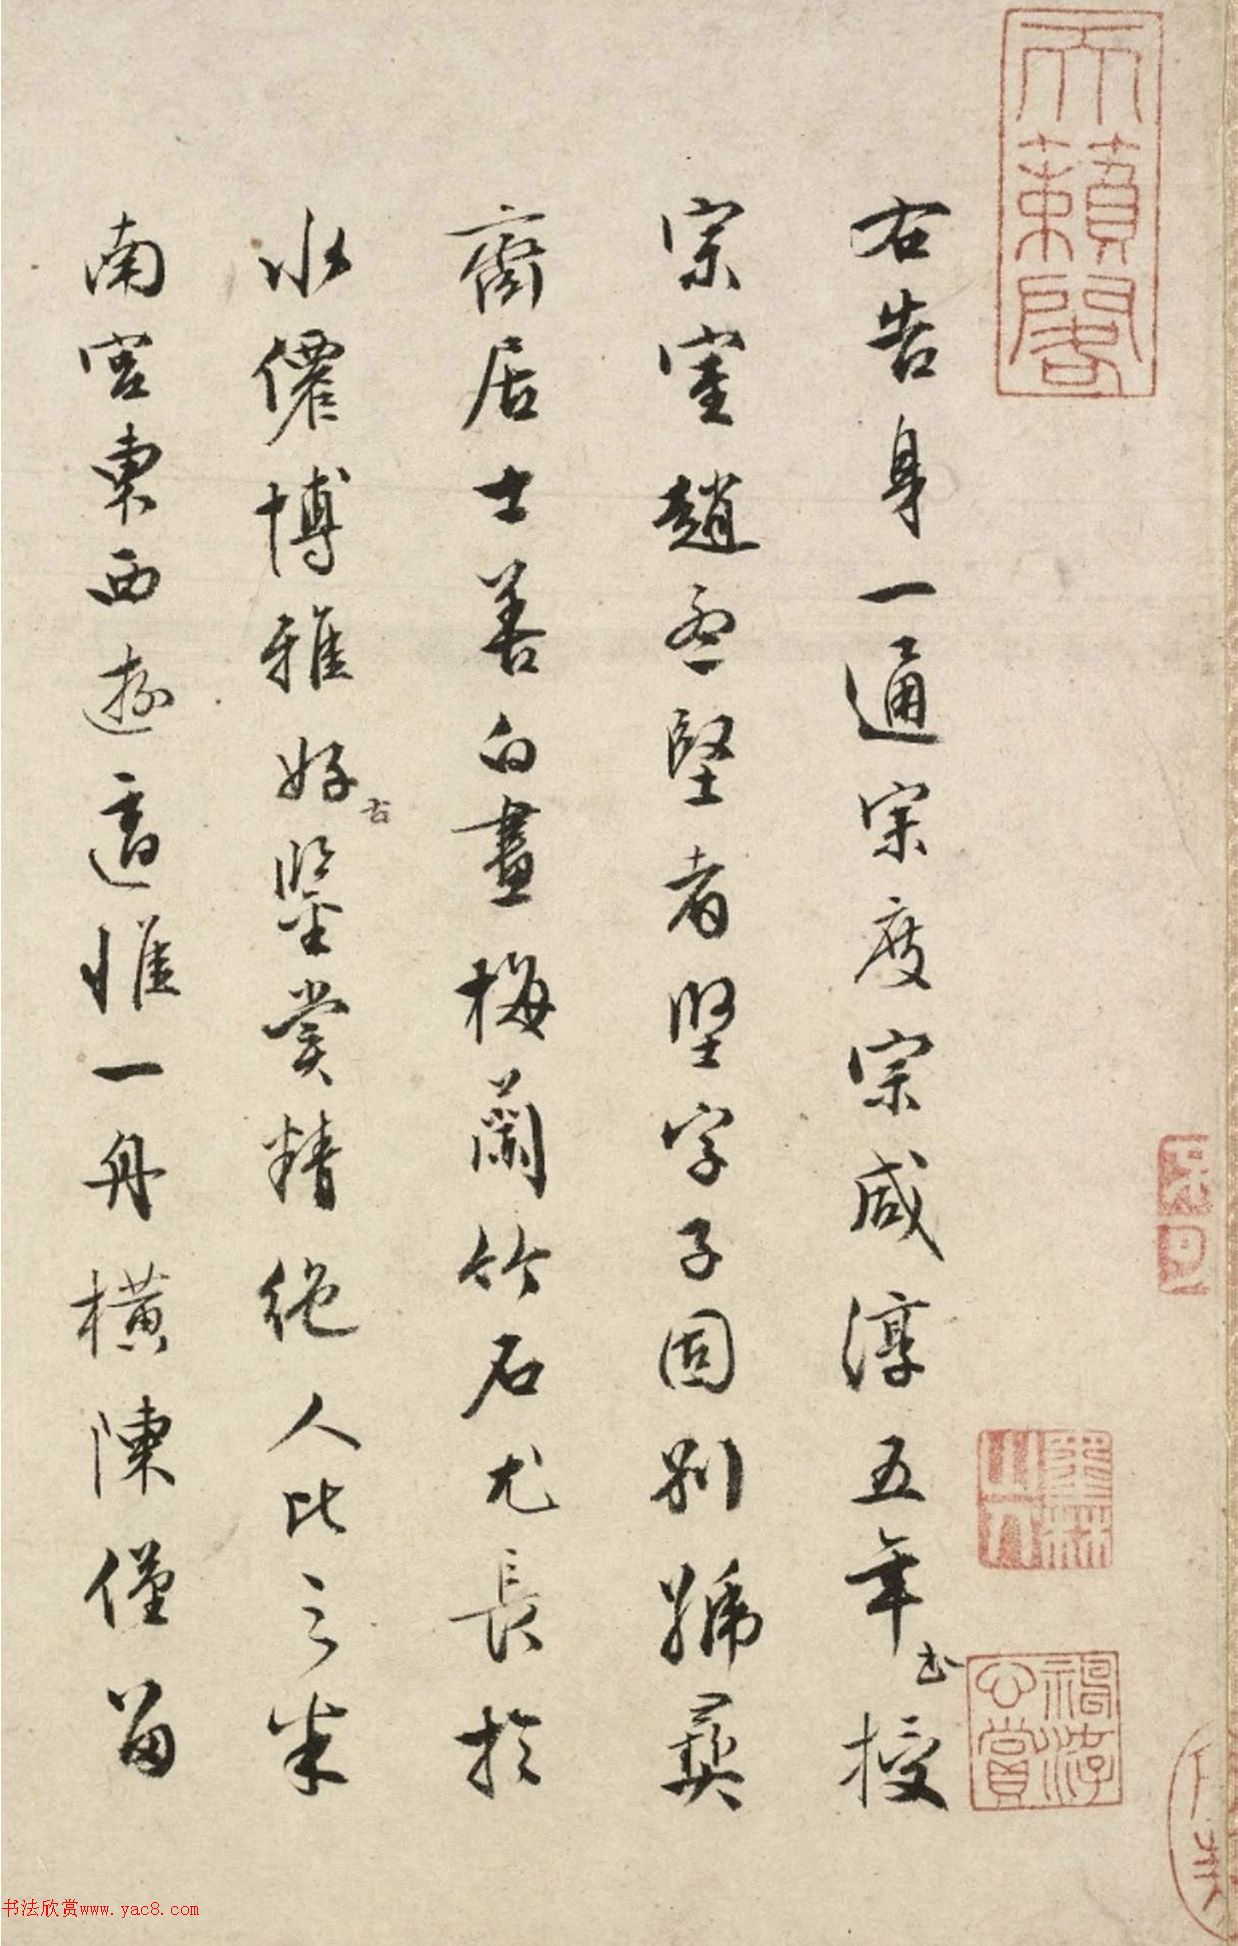 右告身一通宋度宗咸淳五年出授
宗室趙孟堅者堅字子固別號彝
齋居士善白畫梅蘭竹石尤長於
水僊博雅好古鑒賞精絶人比之米
南宮東西遊適惟一舟橫陳僅留
天籟閣
墨林山人
神游心賞
子孫
書法欣賞www.yac8.com